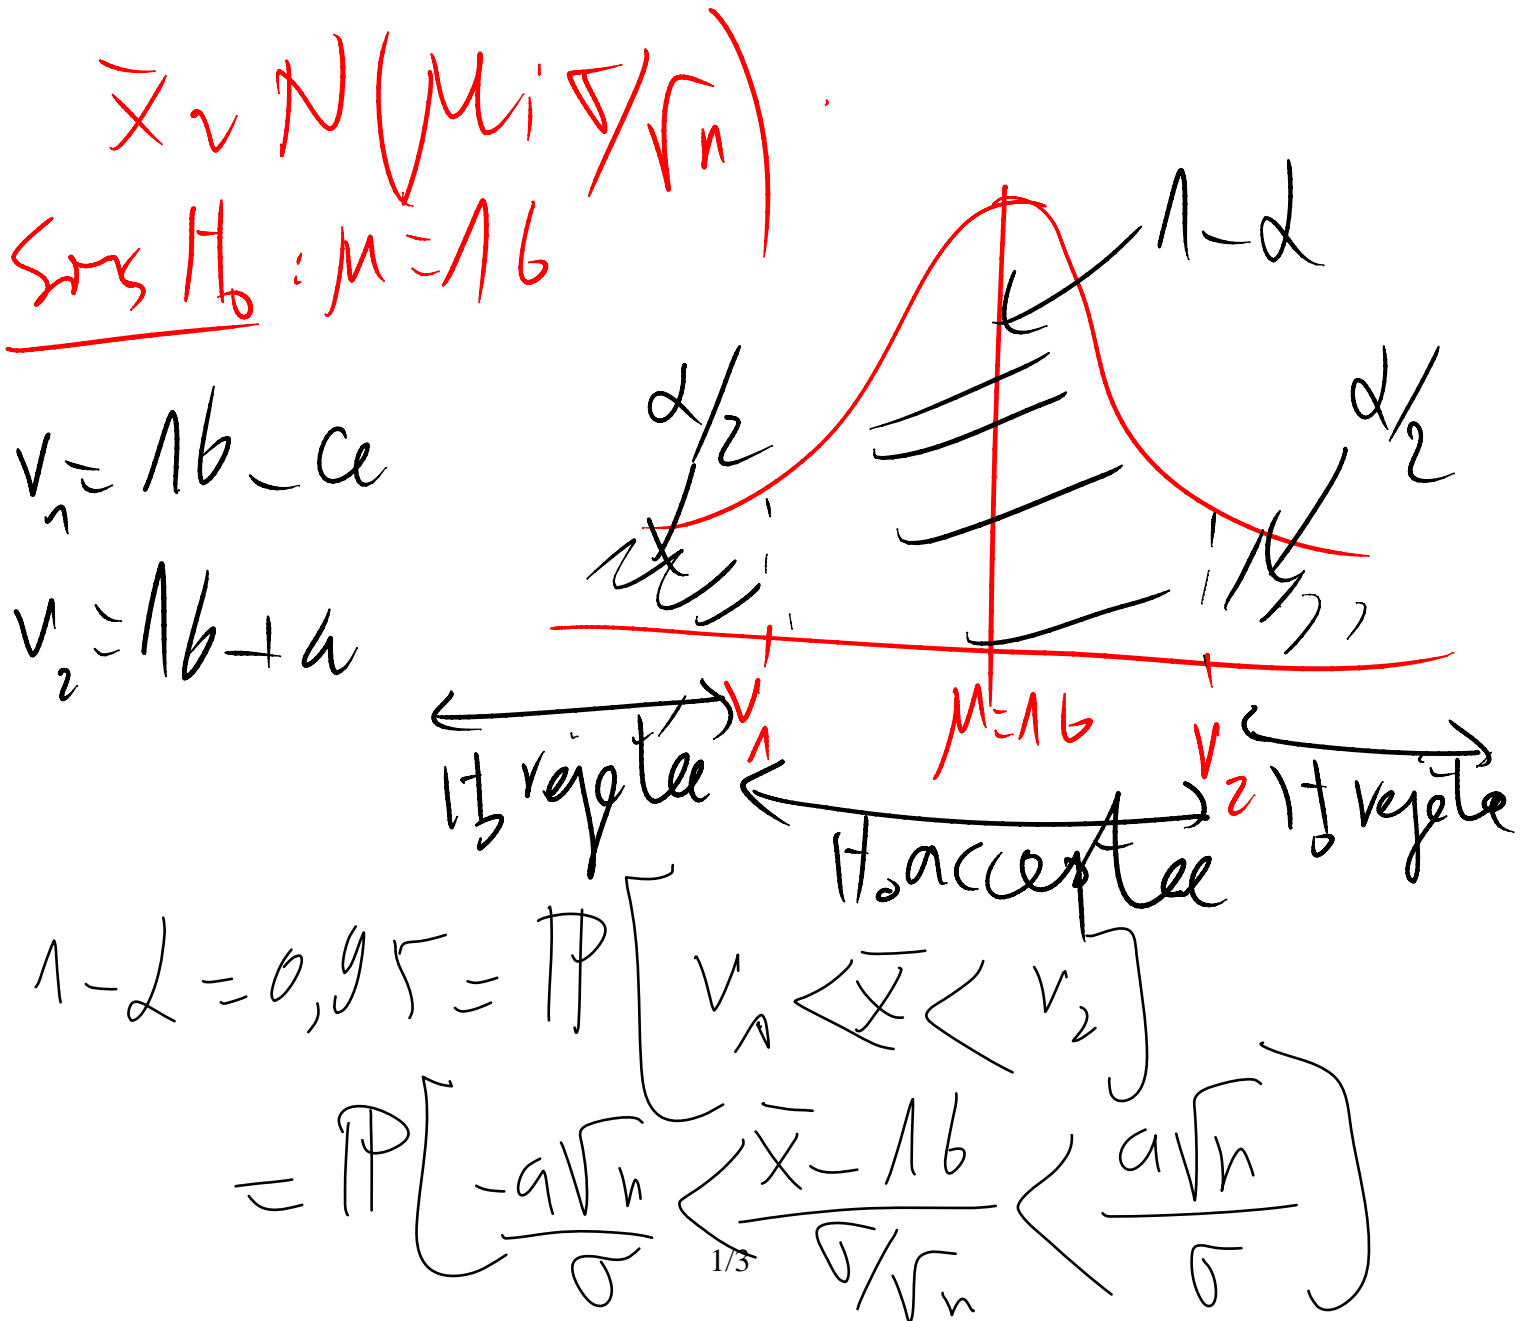 x̄ ~ N(μ; σ/√n)
Sous H₀ : μ = 16
1-α
α/2
α/2
v₁ = 16 - a
v₂ = 16 + a
v₁
μ=16
v₂
H₀ rejetée
H₀ acceptée
H₀ rejetée
1-α = 0,95 = ℙ[v₁ < x̄ < v₂]
= ℙ[-a√n/σ < (x̄ - 16)/(σ/√n) < a√n/σ]
1/3